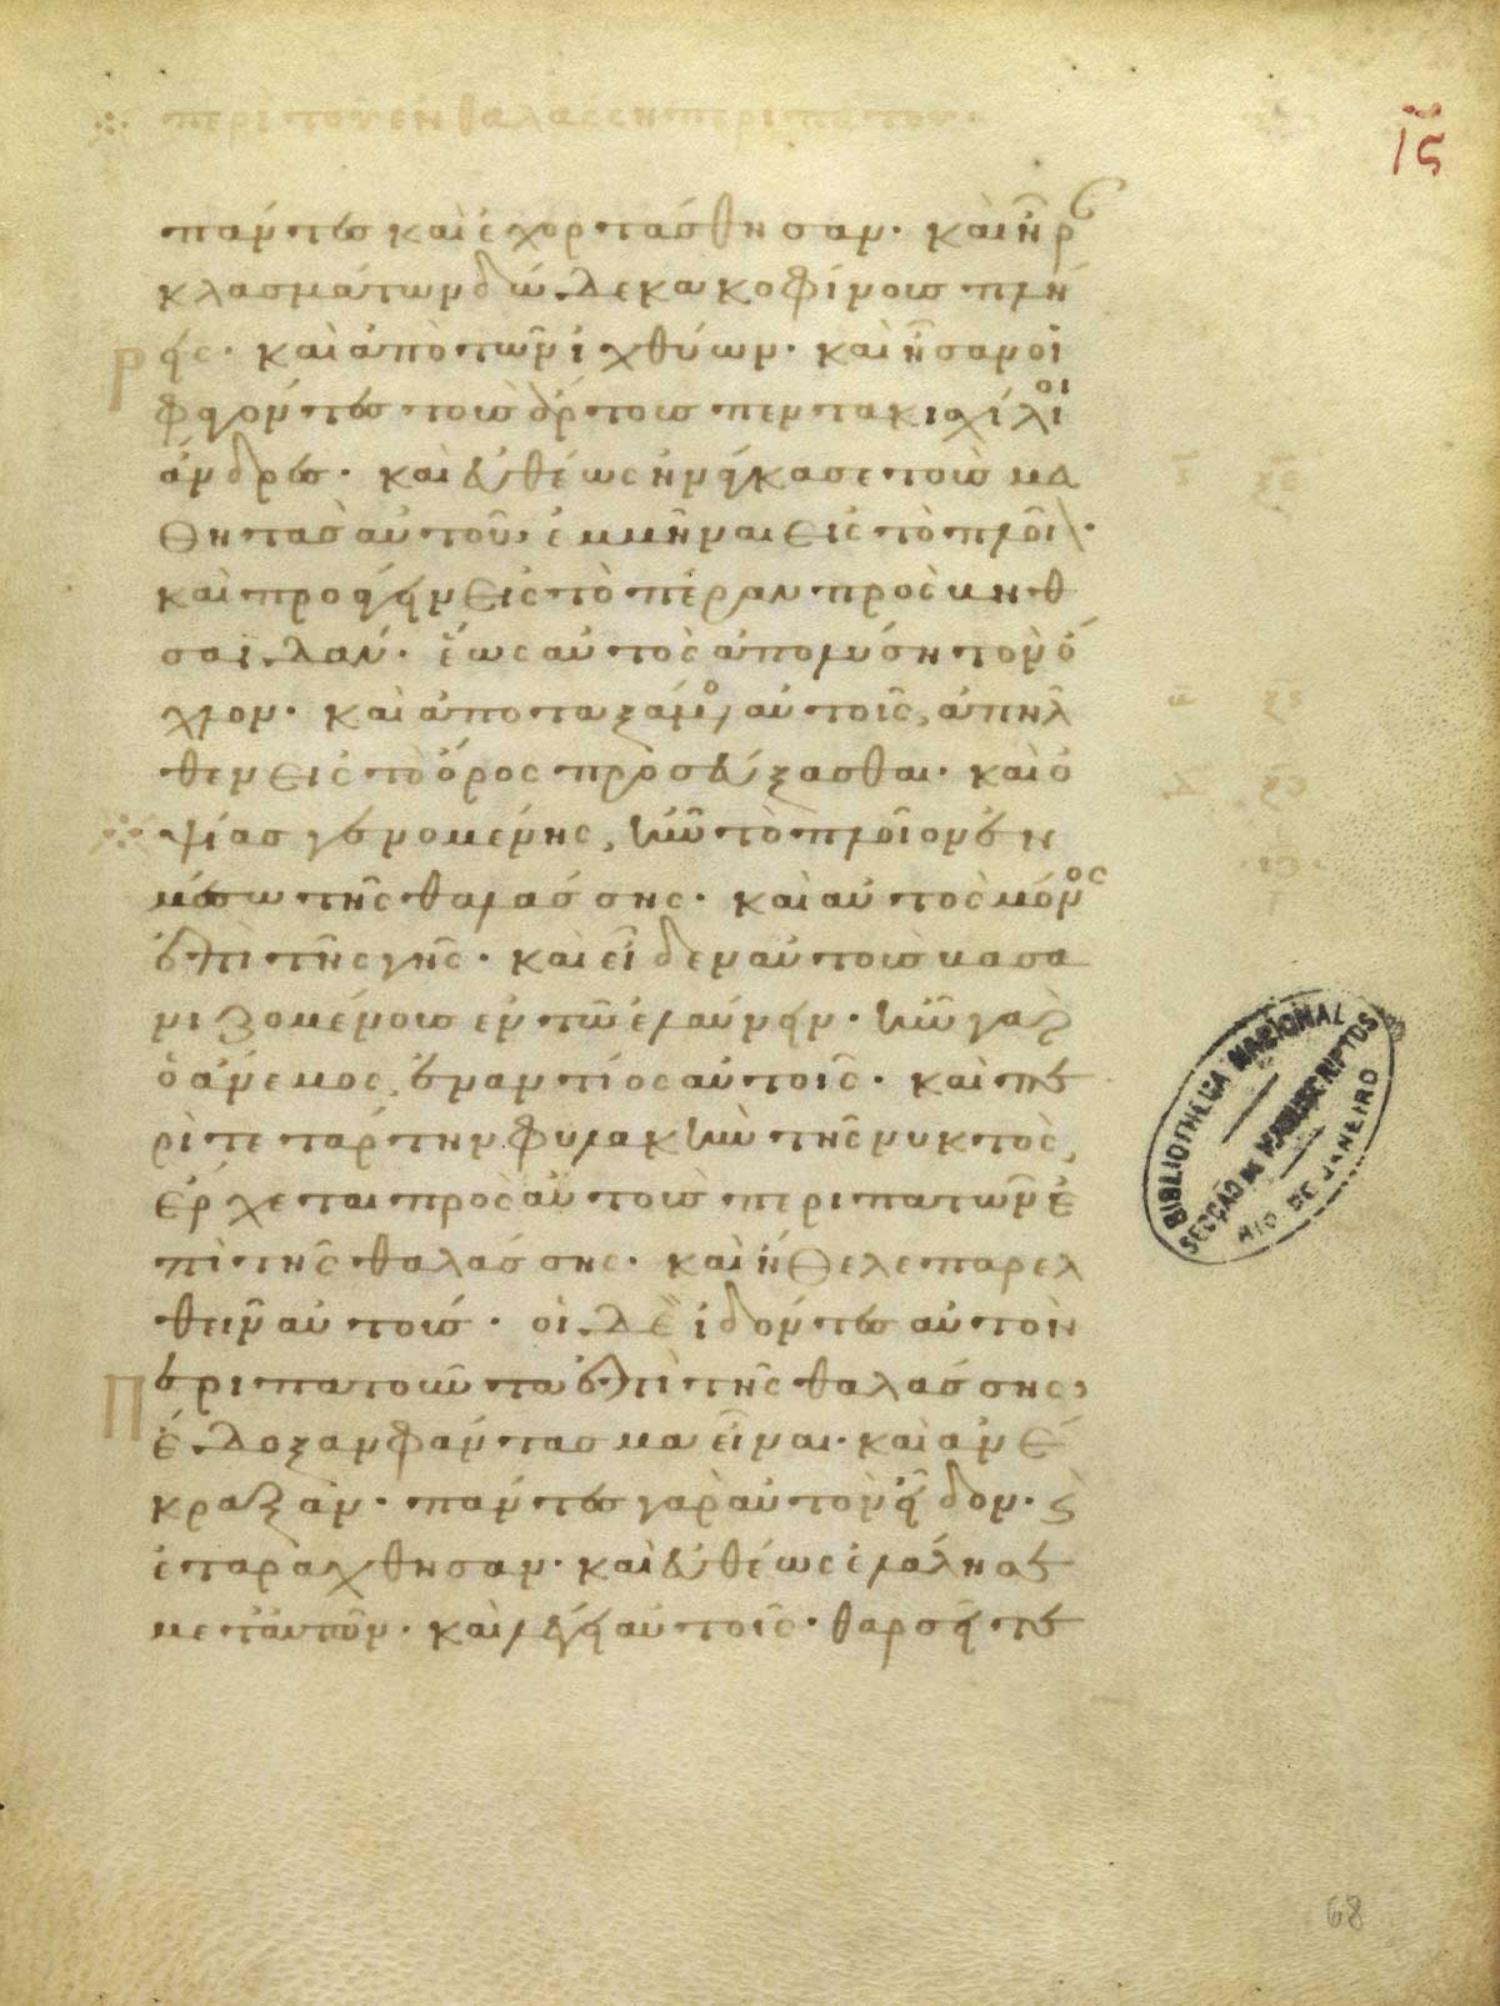 περὶ τοῦ ἐν θαλάσση περιπάτου·
ιϛ
πάντες καὶ ἐχορτάσθησαν· καὶ ἦρ
κλασμάτων δώδεκα κοφίνους πλή
ρεις· καὶ ἀπὸ τῶν ἰχθύων· καὶ ἦσαν οἱ
φαγόντες τοὺς ἄρτους πεντακισχίλιοι
ἄνδρες· καὶ εὐθέως ἠνάγκασε τοὺς μα
θητὰς αὐτοῦ· ἐμβῆναι εἰς τὸ πλοῖ·
καὶ προάγειν εἰς τὸ πέραν πρὸς βηθ
σαϊδάν· ἕως αὐτὸς ἀπολύση τὸν ὄ
χλον· καὶ ἀποταξάμενος αὐτοῖς, ἀπῆλ
θεν εἰς τὸ ὄρος προσεύξασθαι· καὶ ὀ
ψίας γενομένης, ἦν τὸ πλοῖον ἐν
μέσω τῆς θαλάσσης· καὶ αὐτὸς μόνος
ἐπὶ τῆς γῆς· καὶ εἶδεν αὐτοὺς βασα
νιζομένους ἐν τῶ ἐλαύνειν· ἦν γὰρ
ὁ ἄνεμος ἐναντίος αὐτοῖς· καὶ πε
ρὶ τετάρτην φυλακὴν τῆς νυκτὸς,
ἔρχεται πρὸς αὐτοὺς περιπατῶν ἐ
πὶ τῆς θαλάσσης· καὶ ἤθελε παρελ
θεῖν αὐτούς· οἱ δὲ ἰδόντες αὐτὸν
περιπατοῦντα ἐπὶ τῆς θαλάσσης,
ἔδοξαν φάντασμα εἶναι· καὶ ἀνέ
κραξαν· πάντες γὰρ αὐτὸν εἶδον· ϗ
ἐταράχθησαν· καὶ εὐθέως ἐλάλησε
μετ' αὐτῶν· καὶ λέγει αὐτοῖς· θαρσεῖτε
BIBLIOTHECA NACIONAL
SECÇÃO DE MANUSCRIPTOS
RIO DE JANEIRO
68